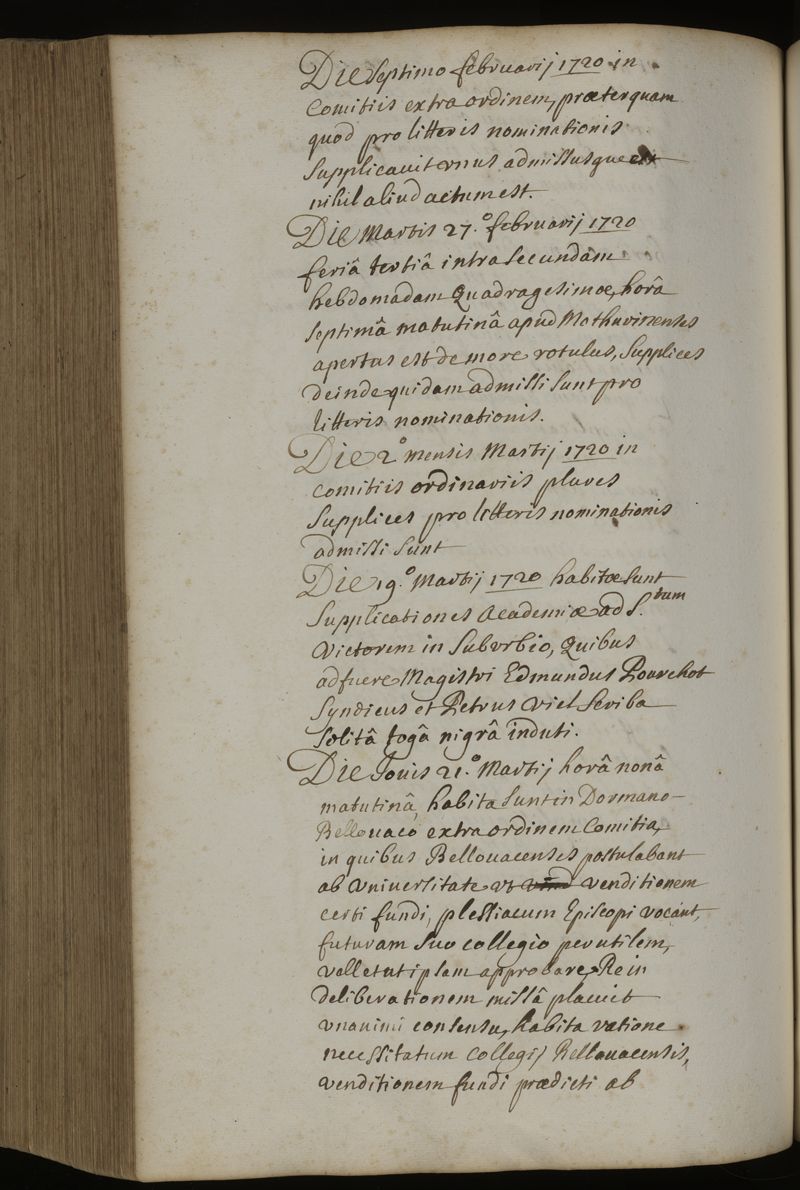 Die Septimo februarij 1720 in
Comitiis extra ordinem, præterquam
quod pro litteris nominationis
Supplicauit vnus admissusque est
nihil aliud actum est.
Die Martis 27.º februarij 1720
feriâ tertiâ intra Secundam
hebdomadam Quadragesimæ, horâ
Septimâ matutinâ apud Mathurinenses
apertus est de more rotulus, Supplices
deinde quidam admissi Sunt pro
litteris nominationis.
Die 2º mensis Martij 1720 in
comitiis ordinariis plures
Supplices pro litteris nominationis
admissi Sunt
Die 19.º Martij 1720 habitæ Sunt
Supplicationes Academiæ ad S.tum
Victorem in Suburbio, Quibus
adfuere Magistri Edmundus Pourchot
Syndicus et Petrus Viel Scriba
Solitâ togâ nigrâ induti.
Die Jouis 21.º Martij horâ nonâ
matutinâ, habita Sunt in Dormano-
Bellouaco extra ordinem Comitia,
in quibus Bellouacenses postulabant
ab Vniuersitate vt venditionem
certi fundi, plessiacum Episcopi vocant,
futuram Suo collegio perutilem,
vellet ut ipsam approbare. Re in
deliberationem missâ placuit
vnanimi consensu, habita ratione
necessitatum collegij Bellouacensis,
venditionem fundi prædicti ab